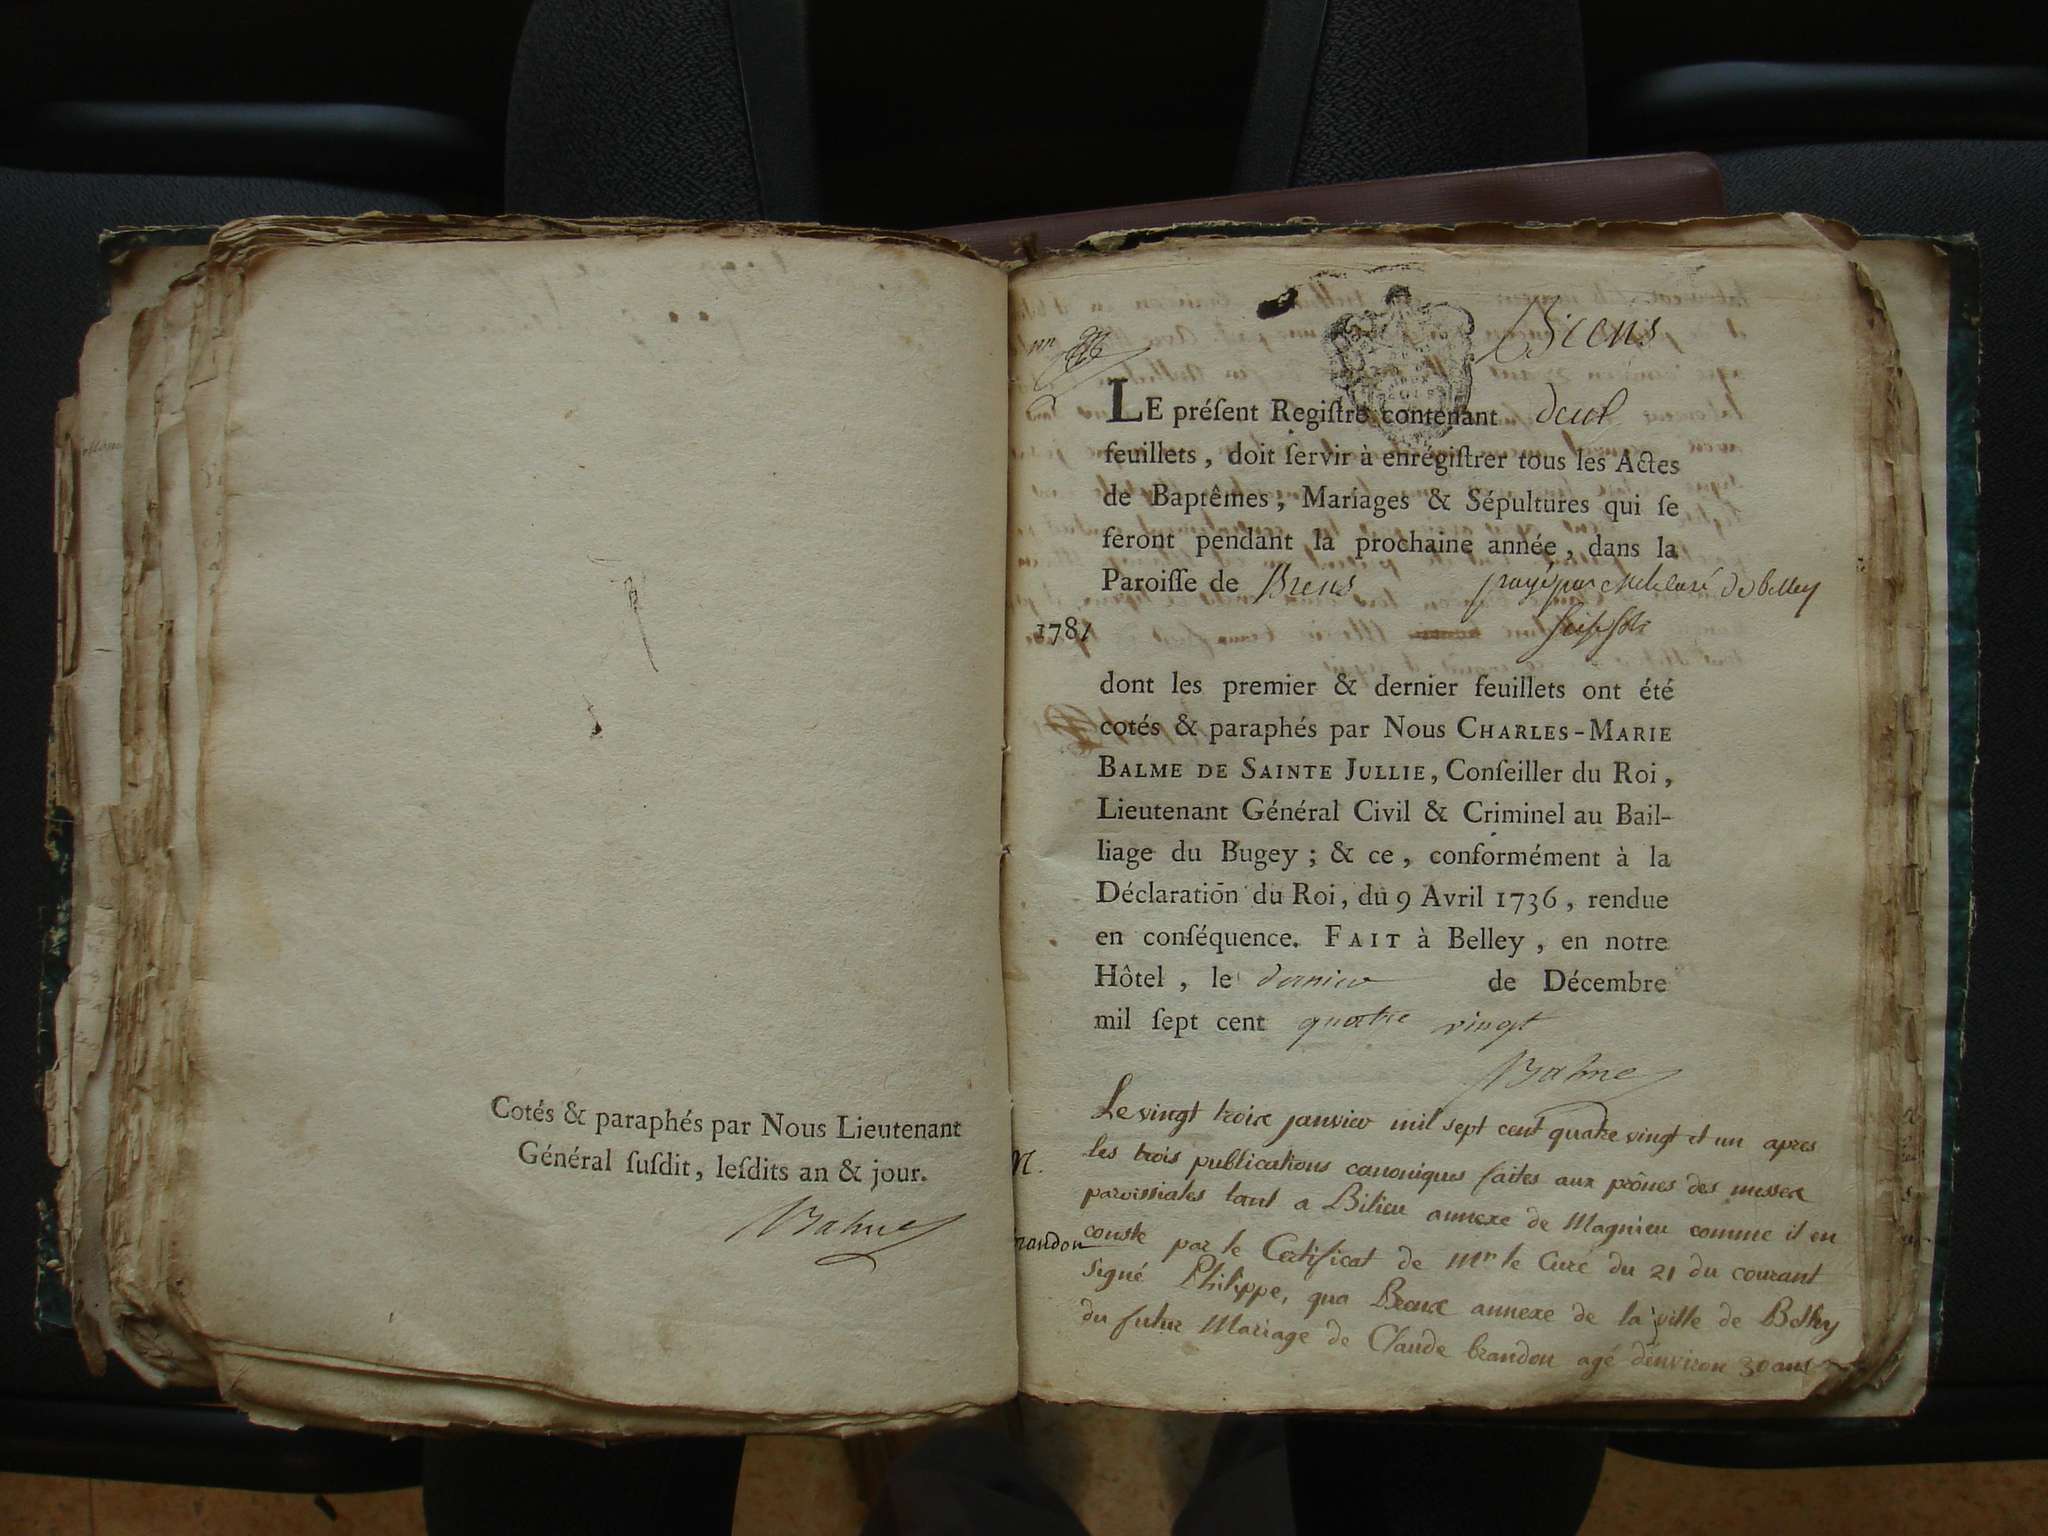 Cotés & paraphés par Nous Lieutenant
Général ſuſdit, leſdits an & jour.
Balme
Brens
LE préſent Regiſtre contenant deux
feuillets, doit ſervir à enrégiſtrer tous les Actes
de Baptêmes, Mariages & Sépultures qui ſe
feront pendant la prochaine année, dans la
Paroiſſe de Brens payé par Mr le Curé de belley
1781
dont les premier & dernier feuillets ont été
cotés & paraphés par Nous CHARLES-MARIE
BALME DE SAINTE JULLIE, Conſeiller du Roi,
Lieutenant Général Civil & Criminel au Bail-
liage du Bugey ; & ce, conformément à la
Déclaration du Roi, du 9 Avril 1736, rendue
en conſéquence. FAIT à Belley, en notre
Hôtel, le dernier de Décembre
mil ſept cent quatre vingt
Balme
Le vingt troix janvier mil sept cent quatre vingt et un apres
les trois publications canoniques faites aux prônes des messes
M.
paroissiales tant a Bilieu annexe de Magnieu comme il en
conste par le Certificat de Mr le Curé du 21 du courant
randon
signé Philippe, qua Brens annexe de la ville de Belley
du futur Mariage de Claude brandon agé d'environ 30 ans